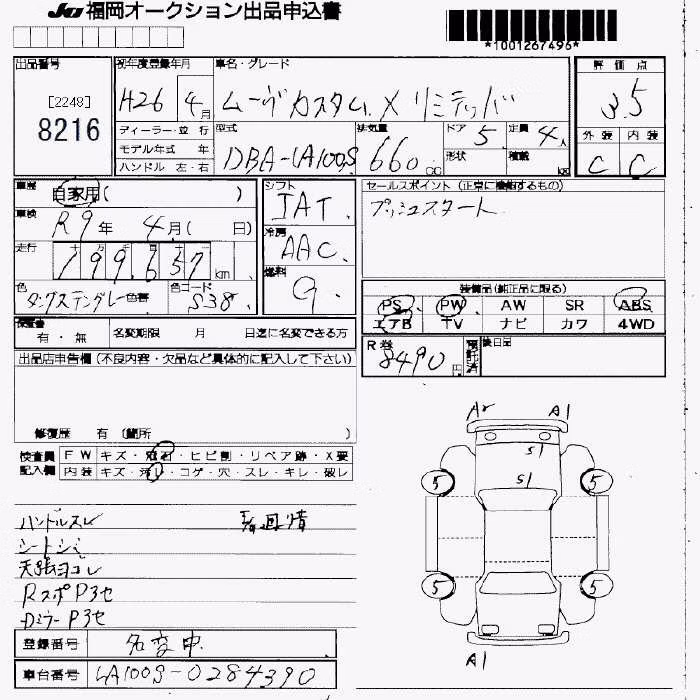 JU 福岡オークション出品申込書
*1001267496*
出品番号
[2248]
8216
初年度登録年月
H26 4月
車名・グレード
ムーヴカスタム X リミテッド
評価点
3.5
ディーラー・並 行
モデル年式 年
ハンドル 左・右
型式
DBA-LA100S
排気量
660 CC
ドア 5
形状
定員 4人
積載 kg
外装 内装
C C
車歴
自家用( )
車検
R9年 4月( 日)
走行
199,657 km
色
色替
色コード
S38
シフト
IAT
冷房
AAC
燃料
G
セールスポイント (正常に機能するもの)
プッシュスタート
装備品(純正品に限る)
PS PW AW SR ABS
エアB TV ナビ カワ 4WD
保証書
有・無
名変期限 月 日迄に名変できる方
R券
8490円
預託済
後日品
出品店申告欄(不良内容・欠品など具体的に記入して下さい)
修復歴 有 (箇所 )
検査員記入欄
FW キズ・飛石・ヒビ割・リペア跡・X要
内装 キズ・汚レ・コゲ・穴・スレ・キレ・破レ
ハンドルスレ
シートシミ
天張ヨゴレ
RスポP3セ
DミラーP3セ
登録番号 名変中
車台番号 LA100S-0284390
A2 A1
S1
S1
5 5
5 5
A1